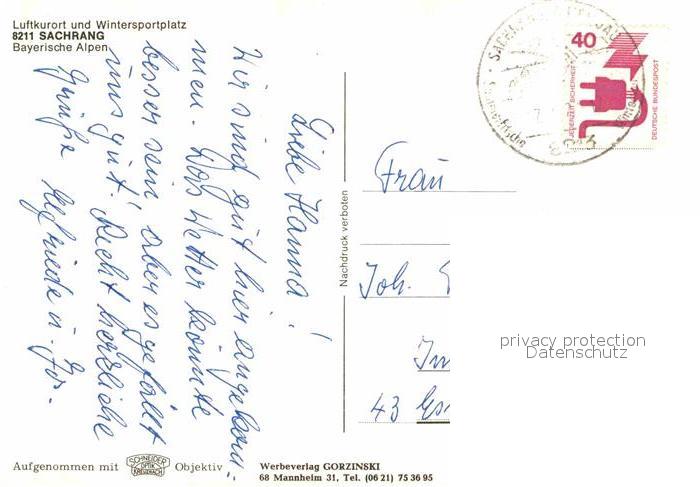 Luftkurort und Wintersportplatz
8211 SACHRANG
Bayerische Alpen
Liebe Hanna!
Wir sind gut hier angekom-
men. Das Wetter könnte
besser sein aber es gefällt
uns gut! Recht herzliche
Grüße
Nachdruck verboten
Frau
Joh.
43
40
JEDERZEIT SICHERHEIT
DEUTSCHE BUNDESPOST
privacy protection
Datenschutz
Aufgenommen mit
SCHNEIDER
OPTIK
KREUZNACH
Objektiv
Werbeverlag GORZINSKI
68 Mannheim 31, Tel. (06 21) 75 36 95